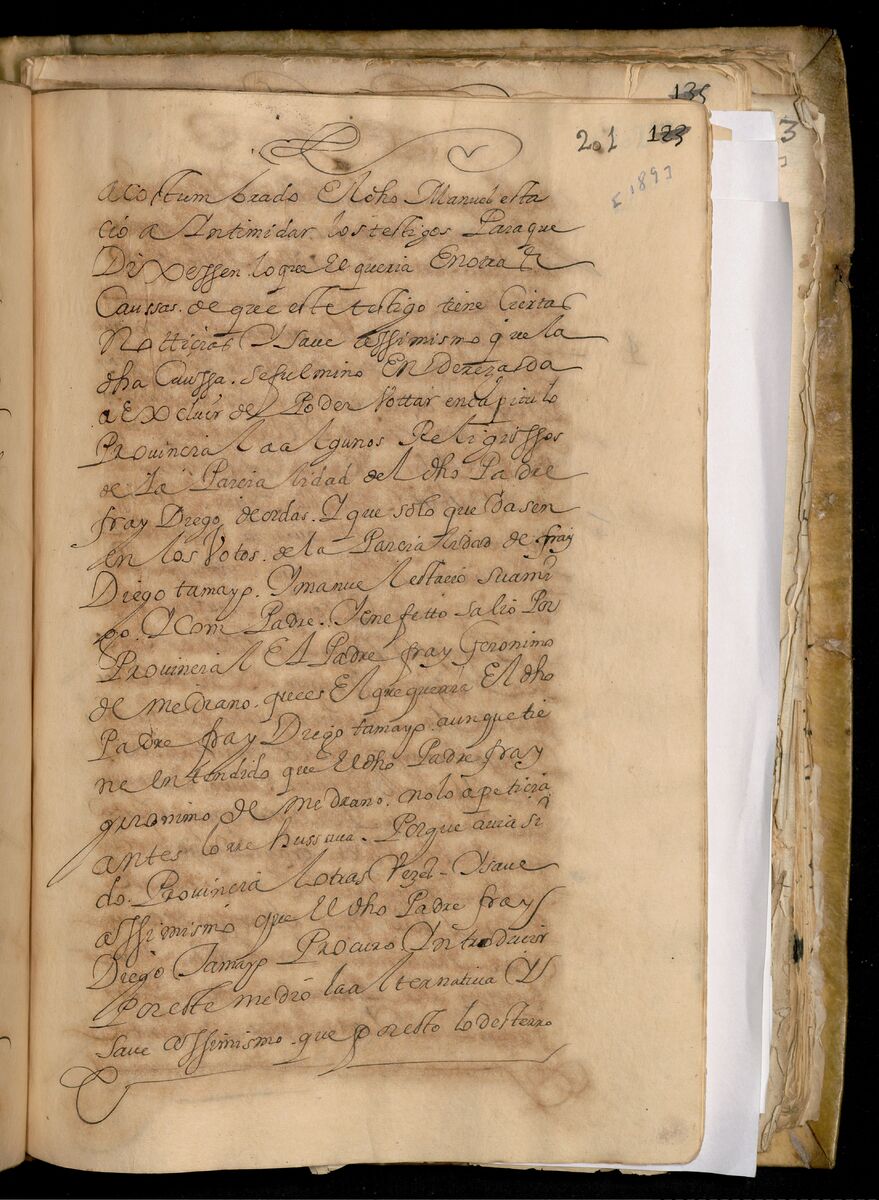 135
201 123
[189]
acostumbrado El dho Manuel esta
cio a Yntimidar los testigos Paraque
Dixessen loque El queria En otras
Caussas. de que este testigo tiene Ciertas
Notticias Y save assimismo que la
dha Caussa. sefulmino En derezada
a Excluir de Poder Vottar en capitulo
Provincial a algunos Religiossos
de La Parcialidad del dho Padre
fray Diego de ordas. Y que solo quedasen
en los Votos. de la Parcialidad de fray
Diego tamayo. Y manuel estacio su ami
go. Y Com Padre. Y en efetto salio Por
Provincial El Padre fray Geronimo
de medrano. que es El que queria El dho
Padre fray Diego tamayo. aunque tie
ne Entendido que El dho Padre fray
geronimo de medrano. no lo apeticia
antes lo rehussava. Porque avia si
do. Provincial otras Vezes - Y save
assimismo que El dho Padre fray
Diego Tamayo Procuro Yntroducir
Por este medio la alternativa Y
save assimismo. que por esto lo desterro